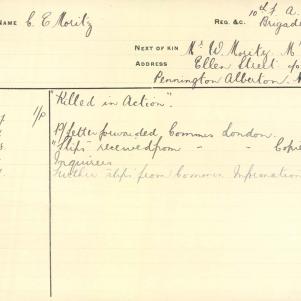 NAME C. E Moritz
REG. &C. 10th F. A.
Brigade
NEXT OF KIN Mr W. Moritz.
ADDRESS Ellen Street
Pennington Alberton.
1/0 "Killed in Action".
P/Letter forwarded Commrs London.
"Slips" received from " " Copie
Inquirers
Further slips from Commrs Information